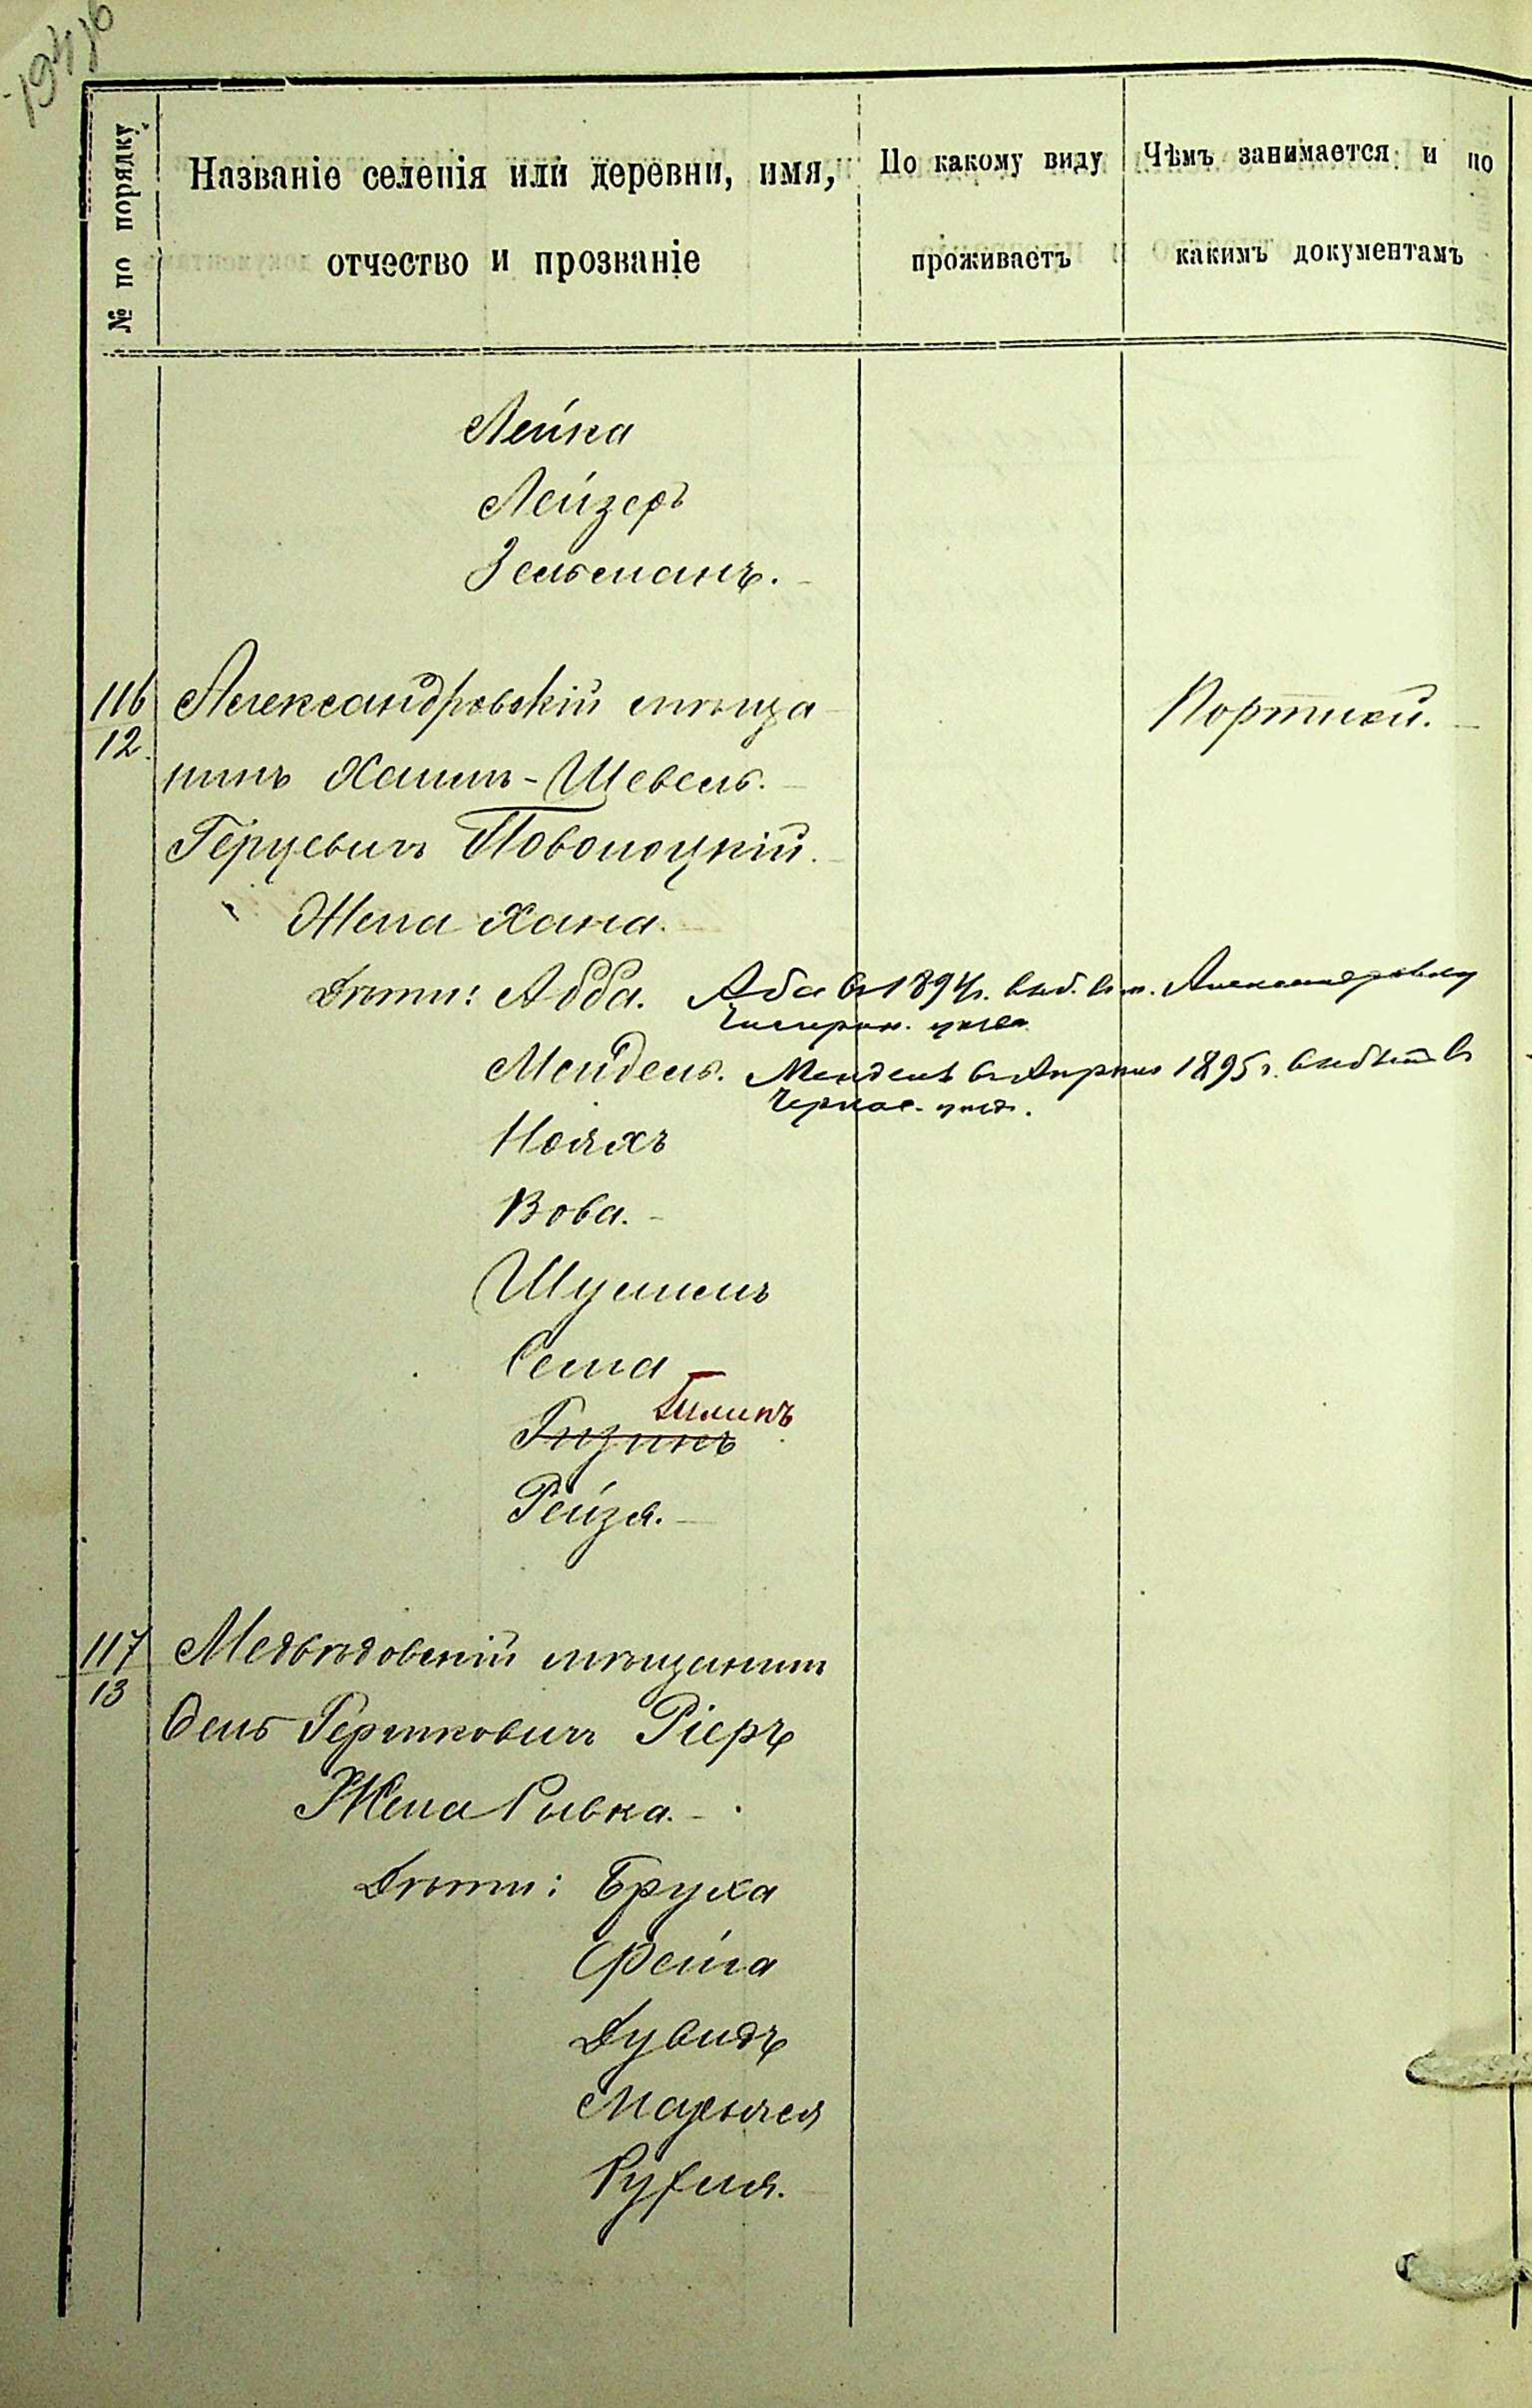 194 об
№ по порядку
Названіе селенія или деревни, имя,
отчество и прозваніе
По какому виду
проживаетъ
Чѣмъ занимается и по
какимъ документамъ
Лейка
Лейзеръ
Зельманъ.
116
12.
Александровскій мѣща
нинъ Хаимъ-Шевель.
Портной.
Геруевичъ Поволоцкій.
Жена Хана.
Дѣти: Абба. Аба въ 1894 г. выб. въ м. Александровку
Чигирин. уѣзда
Мендель. Мендель въ Апрѣлѣ 1895 г. выбылъ въ
Черкас. уѣзд.
Нояхъ
Вова.
Шулимъ
Сема
Гилипъ
Рейзя.
117
13
Медвѣдовскій мѣщанинъ
Гершковичъ Ріеръ
Жена Ривка.
Дѣти: Бруха
Фейга
Дувидъ
Рухля.